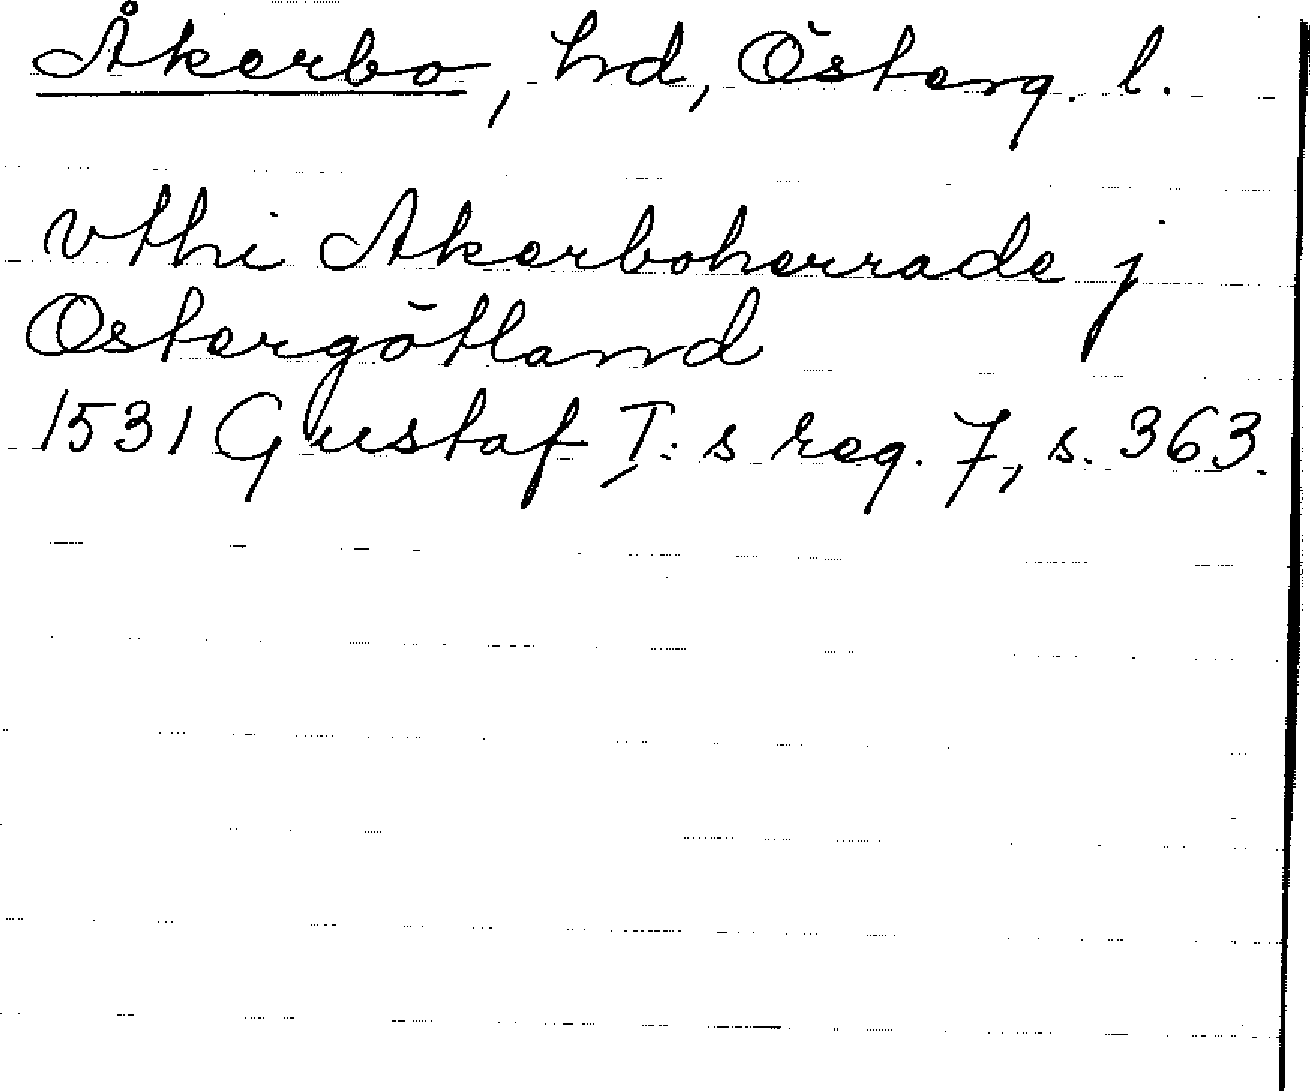 Åkerbo, hd, Österg. l.
vthi Akerboherrade j
Ostergötland
1531 Gustaf I: s reg. 7, s. 363.